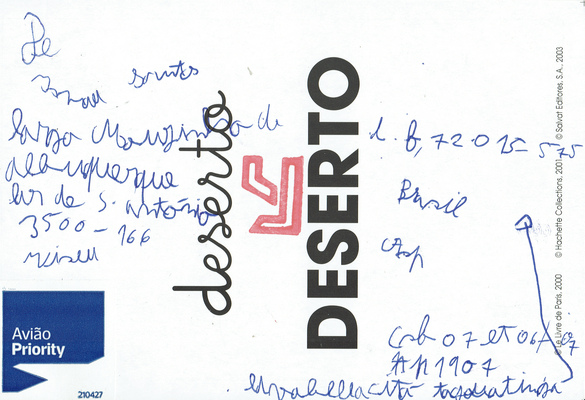 De
Santos
largo Mouzinho de
albuquerque
lar de S. António
3500-166
Viseu
deserto
DESERTO
72015-575
Brasil
Csb 07 et 06/07
AP 1907
taguatinga
Avião
Priority
210427
Le Livre de Paris, 2000 © Hachette Collections, 2001 © Salvat Editores, S.A., 2003